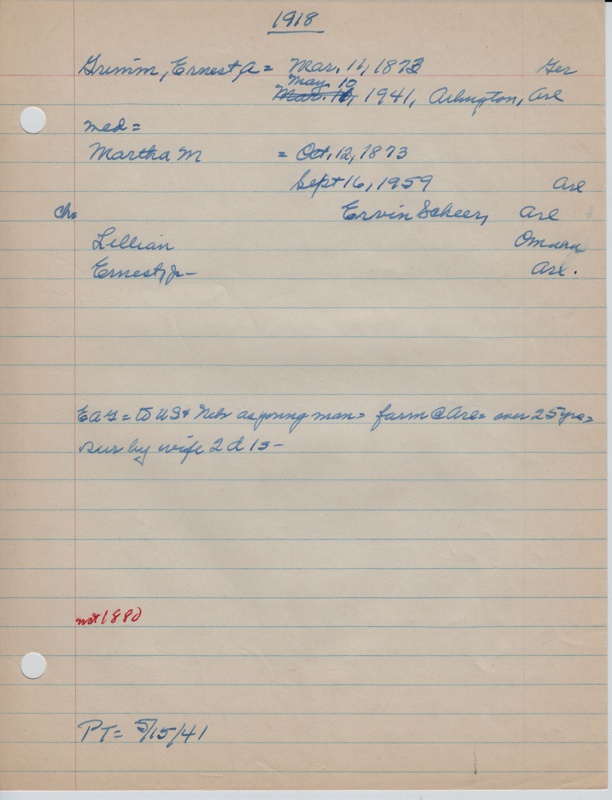 1918
Grimm, Ernest A = Mar. 11, 1873 Ger
May 10
Mar. 11, 1941, Arlington, Arl
med=
Martha M = Oct, 12, 1873
Sept 16, 1959 Arl
Ch= Ervin Scheer, Arl
Lillian Omaha
Ernest, Jr- Arl.
EAG = to US & Neb as young man = farm @ Arl = over 25 yrs =
sur by wife 2 d 1 s -
not 1880
PT = 5/15/41